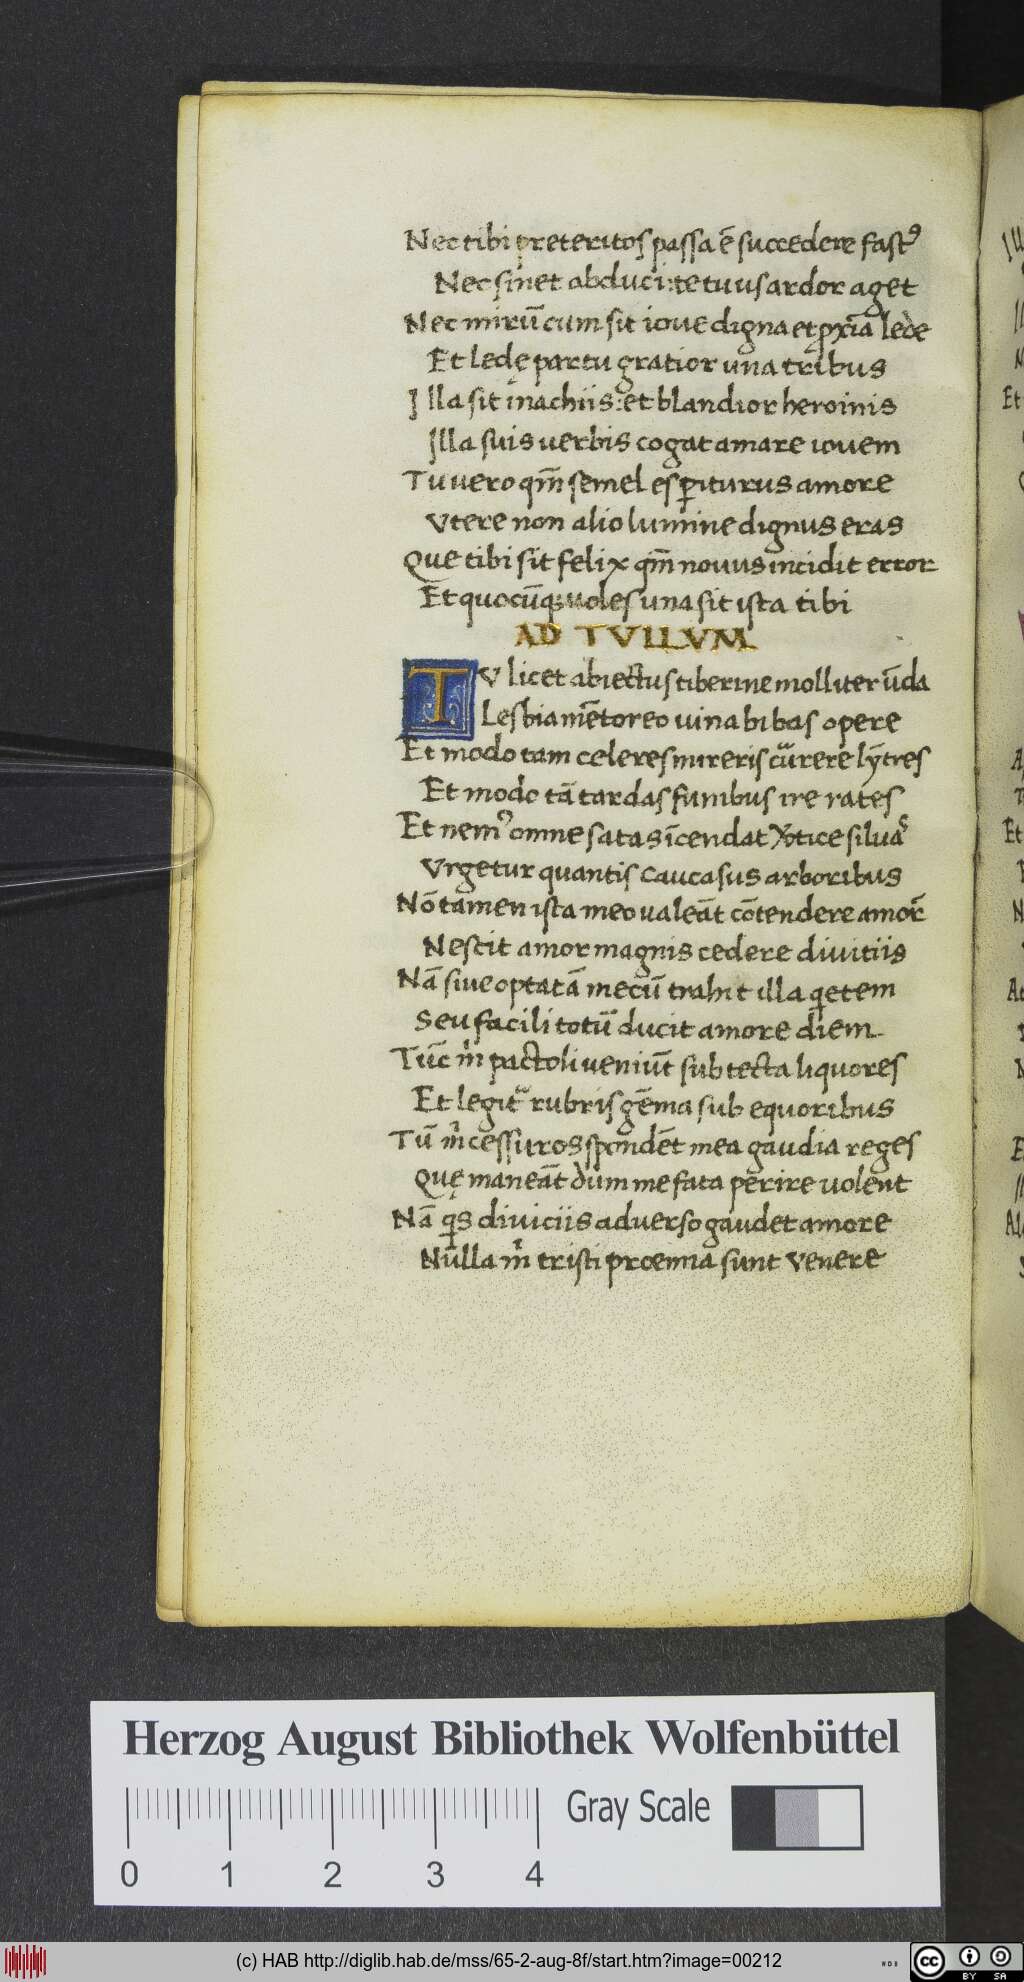 Nec tibi preteritos passa ē succedere fastꝰ
Nec sinet abduci: te tuus ardor aget
Nec mirū cum sit ioue digna et ꝓxīa lede
Et ledę partu gratior una tribus
Illa sit inachiis: et blandior heroinis
Illa suis uerbis cogat amare iouem
Tu uero qm̄ semel es ꝑiturus amore
Vtere non alio lumine dignus eras
Que tibi sit felix qm̄ nouus incidit error
Et quocūqꝫ uoles una sit ista tibi
AD TVLLVM
TV licet abiectus tiberine molliter ūda
Lesbia mētoreo uina bibas opere
Et modo tam celeres mireris cūrere lȳtres
Et modo tā tardas funibus ire rates
Et nemꝰ omne satas īcendat x̄tice siluas
Vrgetur quantis caucasus arboribus
Nō tamen ista meo ualeāt cōtendere amor̄
Nescit amor magnis cedere diuitiis
Nā siue optatā mecū trahit illa qetem
Seu facili totū ducit amore diem
Tūc m̄ pactoli veniūt sub tecta liquores
Et legit᷑ rubris gēma sub equoribus
Tū m̄ cessuros spondēt mea gaudia reges
Quę maneāt dum me fata perire uolent
Nā qs diuiciis aduerso gaudet amore
Nulla m̄ tristi proemia sunt venere
Herzog August Bibliothek Wolfenbüttel
Gray Scale
0 1 2 3 4
(c) HAB http://diglib.hab.de/mss/65-2-aug-8f/start.htm?image=00212
cc BY SA